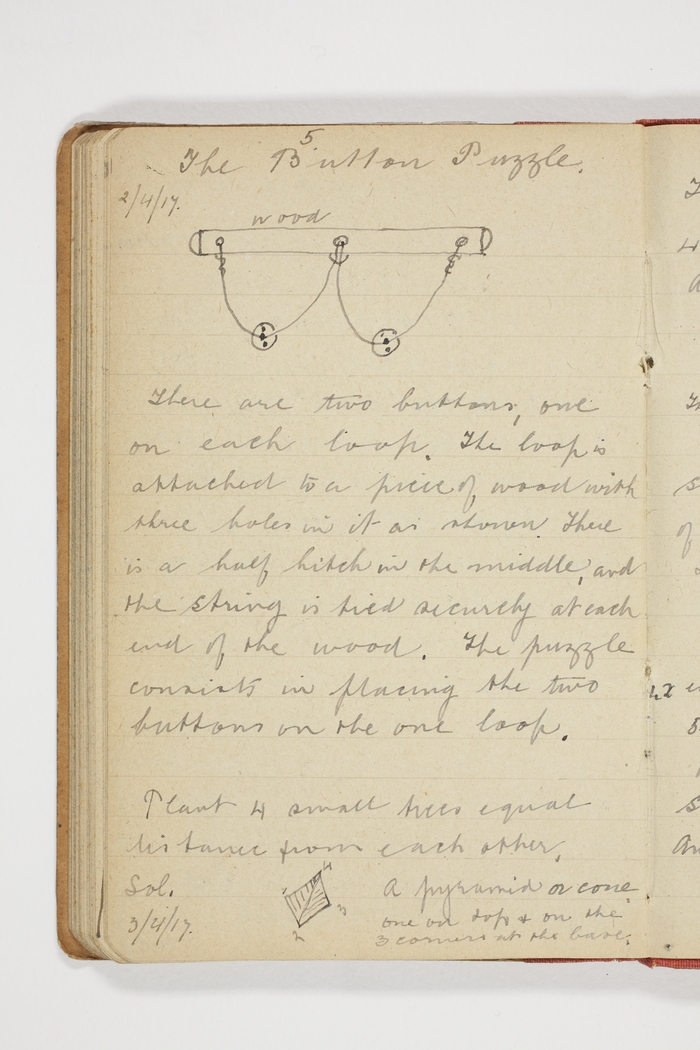 5
The Button Puzzle.
2/4/17.
wood
There are two buttons, one
on each loop. The loop is
attached to a piece of wood with
three holes in it as shown. There
is a half hitch in the middle, and
the string is tied securely at each
end of the wood. The puzzle
consists in placing the two
buttons on the one loop.
Plant 4 small trees equal
distance from each other.
Sol.
3/4/17.
1
2
3
4
A pyramid or cone
one on top & on the
3 corners at the base.
4
of
4x
5